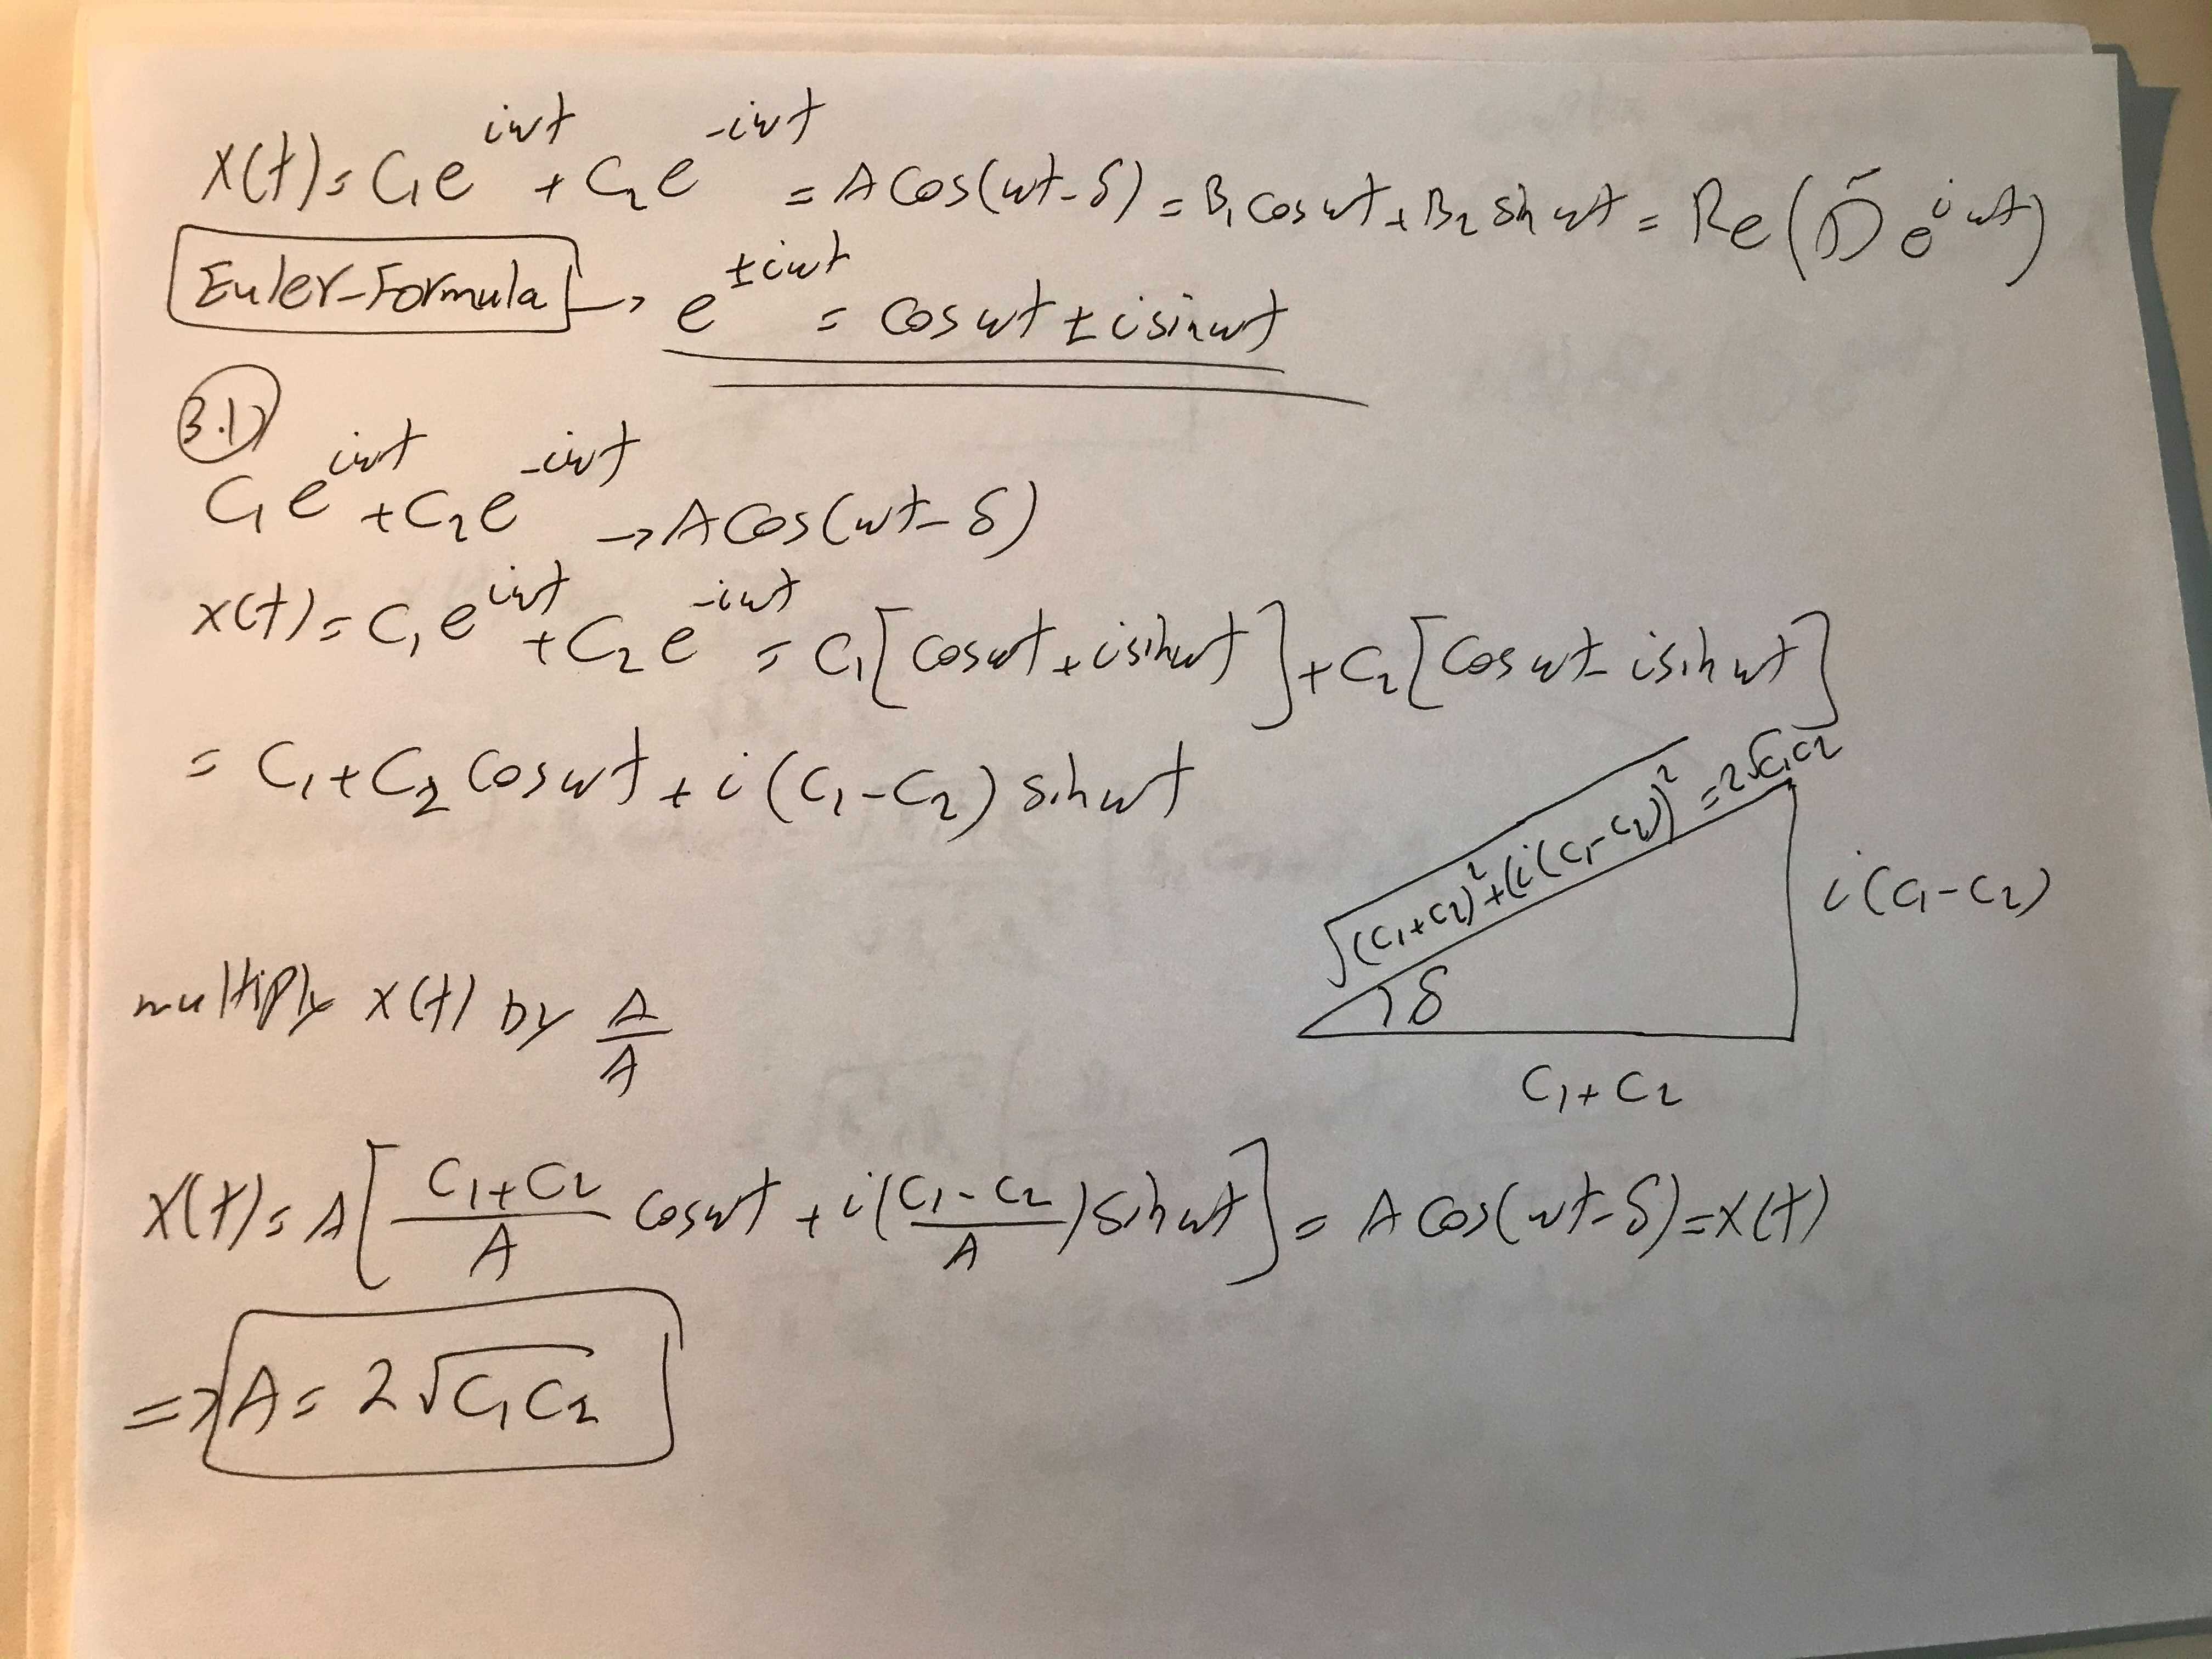 x(t) = C₁e^{iωt} + C₂e^{-iωt} = A Cos(ωt - δ) = B₁ cos ωt + B₂ sin ωt = Re(D̄ e^{iωt})
Euler-Formula → e^{±iωt} = cos ωt ± i sin ωt
3.1)
C₁e^{iωt} + C₂e^{-iωt} → A Cos(ωt - δ)
x(t) = C₁e^{iωt} + C₂e^{-iωt} = C₁[cos ωt + i sin ωt] + C₂[Cos ωt - i sin ωt]
= C₁ + C₂ Cos ωt + i(C₁ - C₂) sin ωt
√(C₁+C₂)² + (i(C₁-C₂))² = 2√C₁C₂
i(C₁ - C₂)
δ
C₁ + C₂
multiply x(t) by A/A
x(t) = A[(C₁+C₂)/A cos ωt + i((C₁-C₂)/A) sin ωt] = A Cos(ωt - δ) = x(t)
=> A = 2√C₁C₂